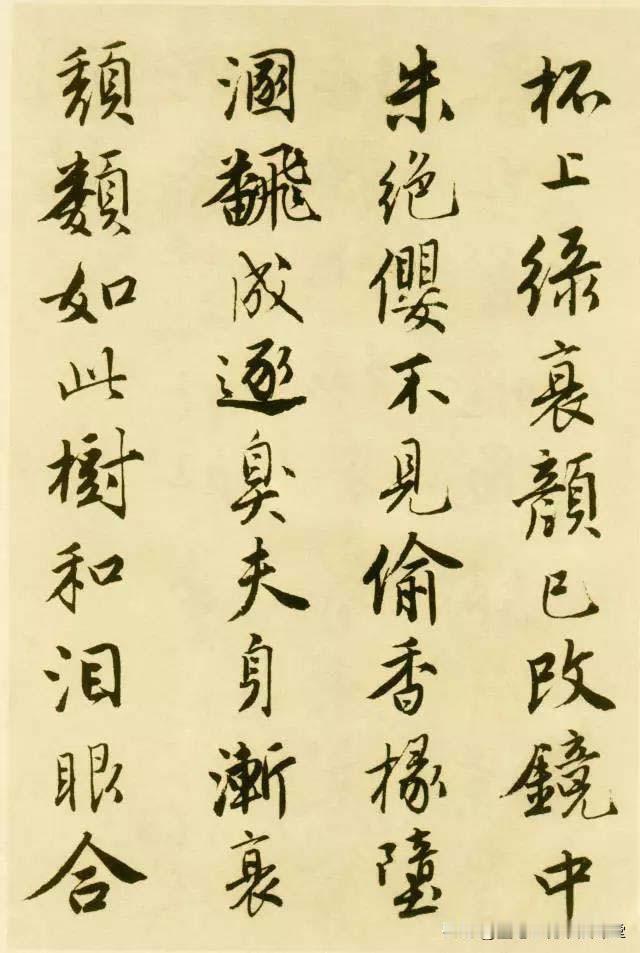 杯上緑衰顔已改鏡中
朱絶纓不見偷香椽墮
溷飜成逐臭夫身漸衰
頽類如此樹和泪眼合